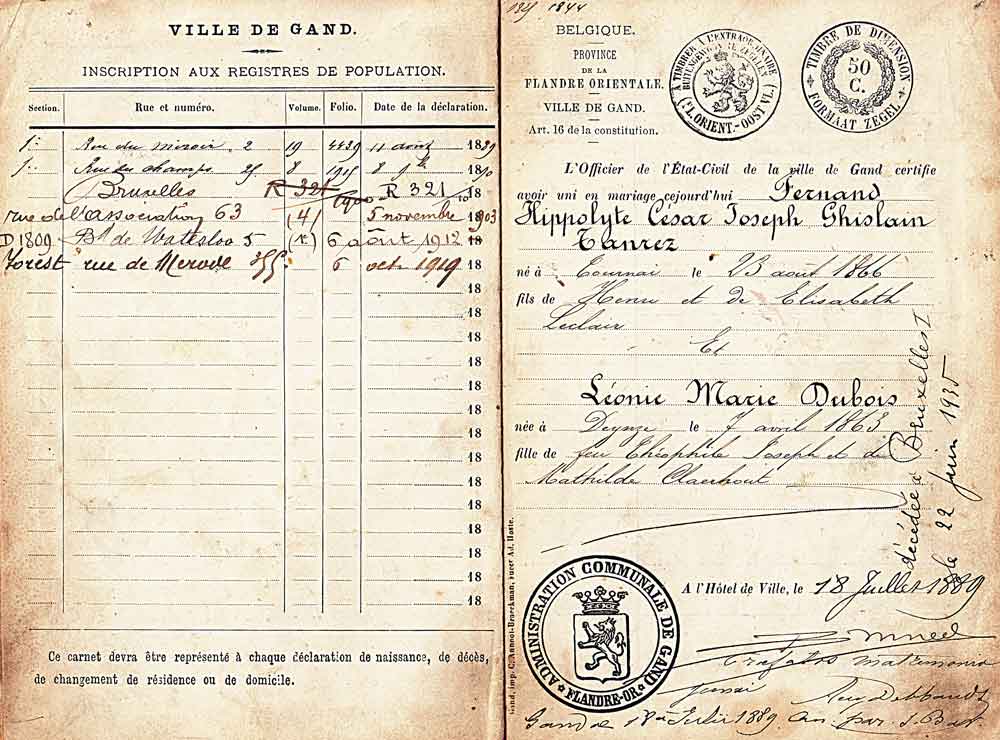 VILLE DE GAND.
INSCRIPTION AUX REGISTRES DE POPULATION.
Section. Rue et numéro. Volume. Folio. Date de la déclaration.
1e Rue du miroir. 2 19 4439 11 août 1889
1e Rue des champs 25 8 1890
Bruxelles R 321 R 321 18
rue de l'association 63 (4) 5 novembre 1903
D 1809 Bd de Waterloo 5 (r) 6 août 1912 18
Forest rue de Merode 6 octr 1919 18
18
18
18
18
18
18
18
18
18
18
18
18
18
18
Ce carnet devra être représenté à chaque déclaration de naissance, de décès,
de changement de résidence ou de domicile.
1844
BELGIQUE.
PROVINCE
DE LA
FLANDRE ORIENTALE.
VILLE DE GAND.
Art. 16 de la constitution.
A TIMBRER À L'EXTRAORDINAIRE
BUITENGEWOON TE ZEGELEN
(FL. ORIENT.-OOST VL.)
TIMBRE DE DIMENSION
50
C.
FORMAAT ZEGEL
L'Officier de l'État-Civil de la ville de Gand certifie
avoir uni en mariage cejourd'hui Fernand
Hippolyte César Joseph Ghislain
Tanrez
né à Tournai le 23 août 1866
fils de Henri et de Elisabeth
Leclair
Et
Léonie Marie Dubois
née à Deynze le 7 avril 1863
fille de feu Théophile Joseph et de
Mathilde Claerhout
décédée à Bruxelles I
le 22 juin 1935
A l'Hôtel de Ville, le 18 Juillet 1889
ADMINISTRATION COMMUNALE DE GAND
FLANDRE-OR.
Gand, imp. C. Annoot-Braeckman, succr Ad. Hoste.
Gand 18 Juillet 1889